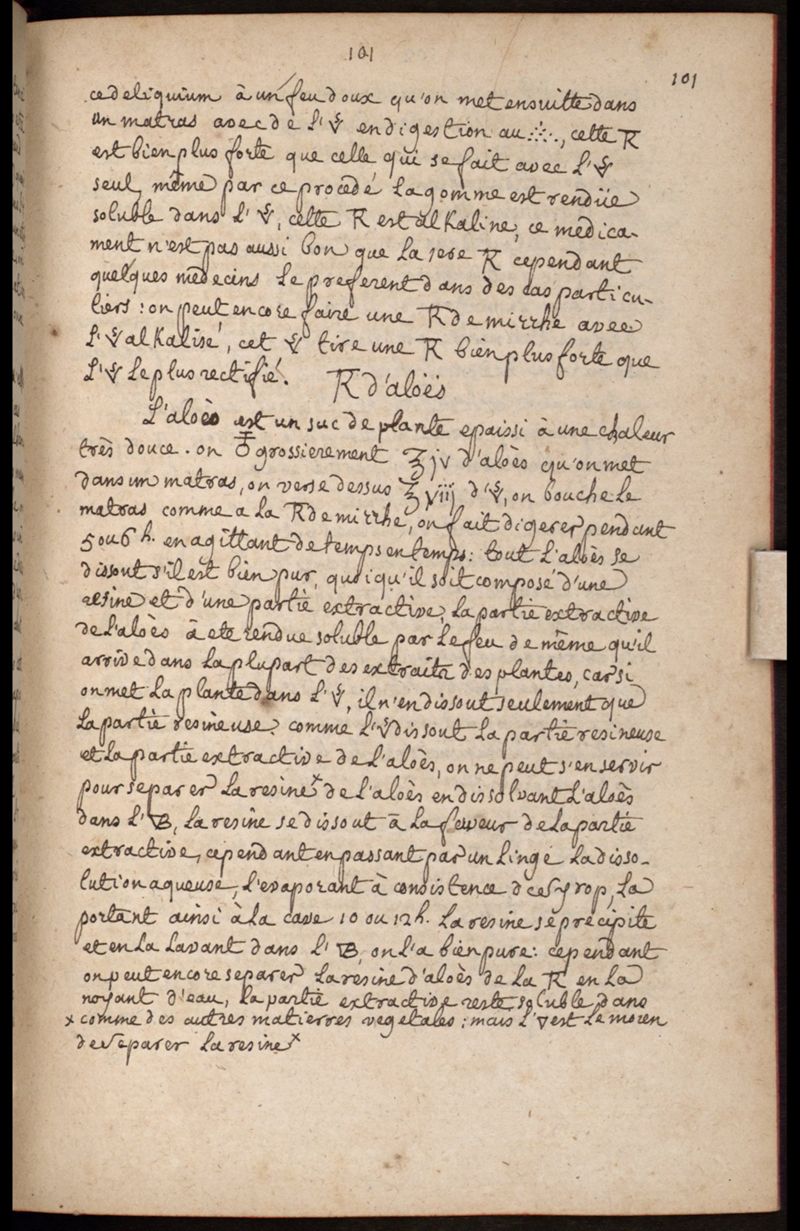 101
101
ce deliquium à un feu doux qu'on met ensuitte dans
un matras avec de l'🜈 en digestion au ·:·., cette R
est bien plus forte que celle qui se fait avec l'🜈
seul, même par ce procédé la gomme est rendüe
soluble dans l'🜈, cette R est alkaline, ce médica-
ment n'est pas aussi bon que la 1ere R cependant
quelques médecins le preferent dans des cas particu-
liers: on peut encore faire une R de mirrhe avec
l'🜈 alkalisé, cet 🜈 tire une R bien plus forte que
l'🜈 le plus rectifié.
R d'aloës
L'aloès est un suc de plante epaissi à une chaleur
très douce. on grossierement ℥jv d'aloès qu'on met
dans un matras, on verse dessus ℥viij d'🜈, on bouche le
matras comme a la R de mirrhe, on fait digerer pendant
5 ou 6 h. en agittant de temps en temps: tout l'aloès se
dissout s'il est bien pur, quoiqu'il soit composé d'une
resine et d'une partie extractive, la partie extractive
de l'aloès à eté rendue soluble par le feu de même qu'il
arrive dans la plupart des extraits des plantes, car si
on met la plante dans l'🜈, il n'en dissout seulement que
la partie resineuse? comme l'🜈 dissout la partie resineuse
et la partie extractive de l'aloès, on ne peut s'en servir
pour separer la resine x de l'aloès en dissolvant l'aloès
dans l'🜄, la resine se dissout à la faveur de la partie
extractive, cependant en passant par un linge la disso-
lution aqueuse, l'evaporant à consistence de syrop, la
portant ainsi à la cave 10 ou 12 h. la resine se précipite
et en la lavant dans l'🜄, on l'a bien pure: cependant
on peut encore separer la resine d'aloès de la R en la
noyant d'eau, la partie extractive reste soluble dans
x comme des autres matierres vegetales; mais l'🜄 est le moien
de separer la resine x